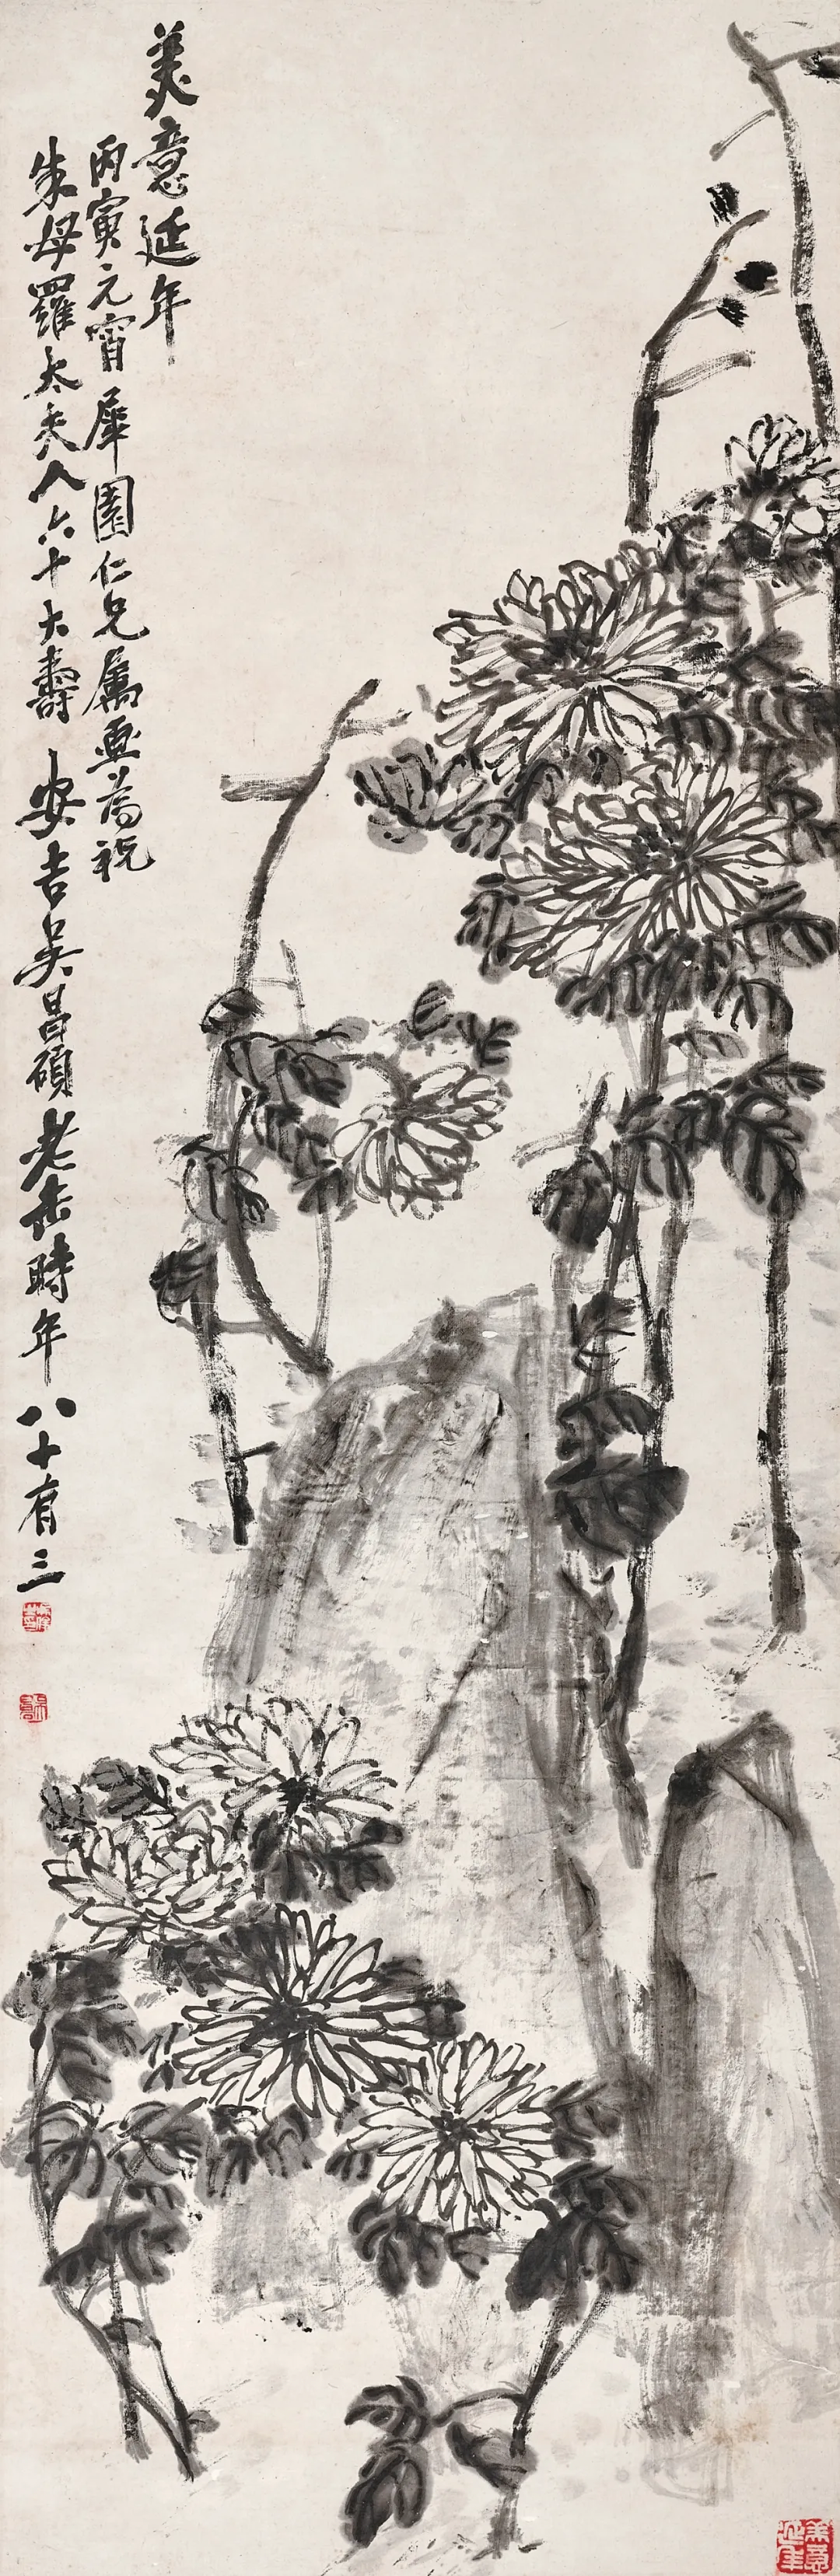 美意延年
丙寅元宵犀園仁兄屬畫為祝
朱母羅太夫人六十大壽安吉吳昌碩老缶時年八十有三
美意延年